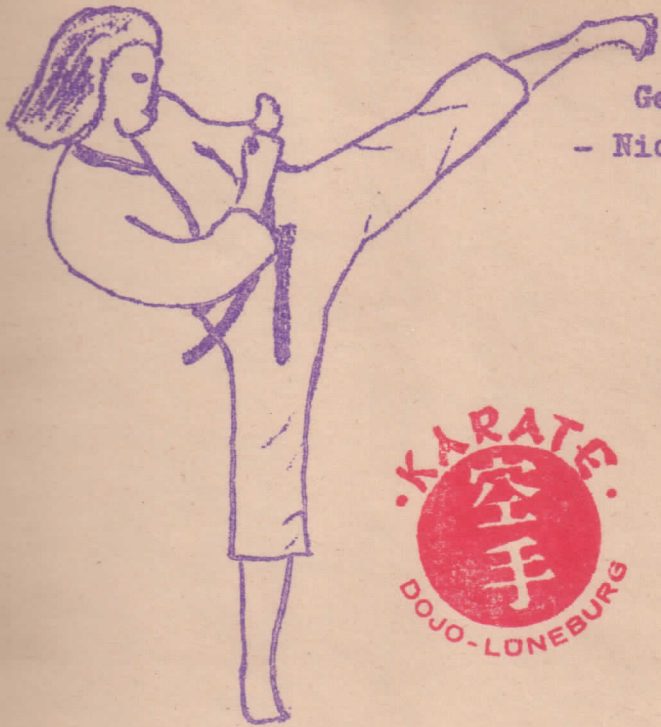 ·KARATE·
空
手
DOJO-LÜNEBURG